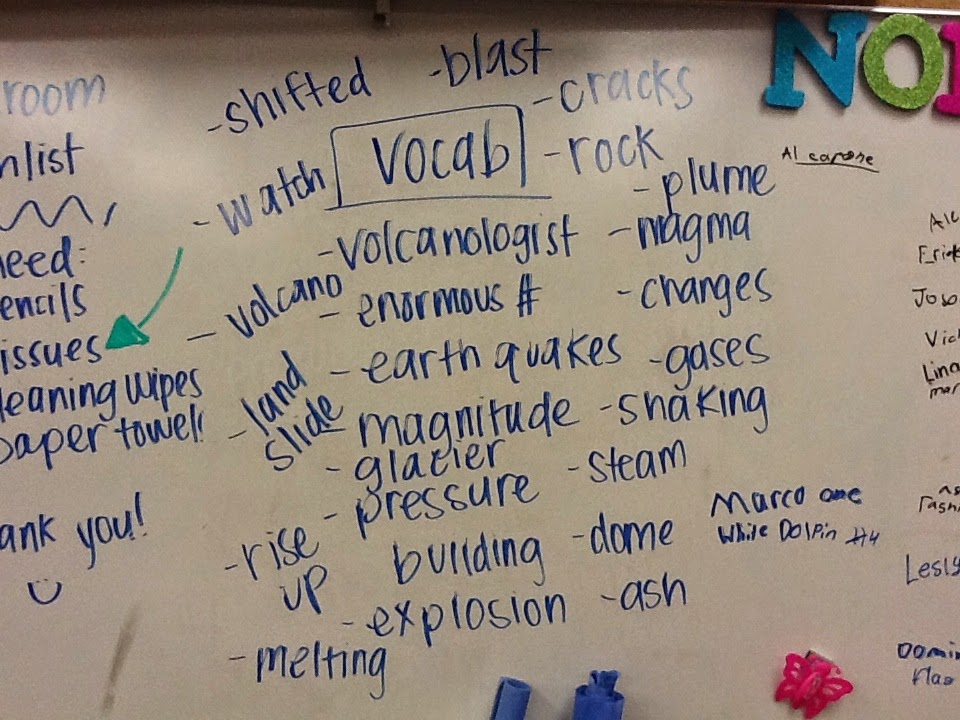 room
nlist
need:
encils
issues
leaning wipes
paper towel!
ank you!
- shifted
- blast
- cracks
vocab
- rock
- watch
- plume
- volcanologist
- magma
- volcano
- enormous #
- changes
- earth quakes
- gases
- land
slide
magnitude
- shaking
- glacier
- steam
- pressure
- rise
up
building
- dome
- explosion
- ash
- melting
NO
Al capone
Marco one
While DOlPin #4
Alc
Erick
Jose
Vic
Lina
mar
as
Fashi
Lesly
Domin